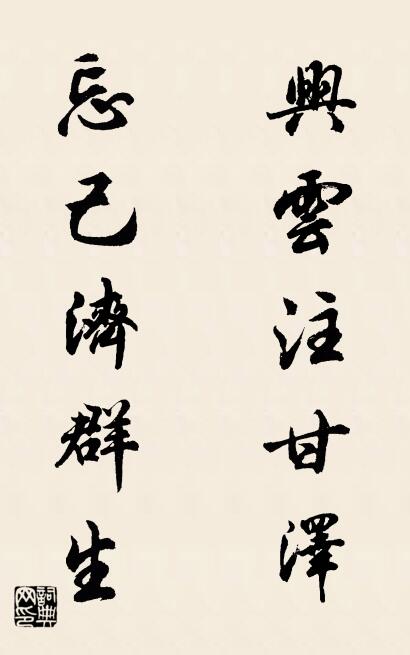 興雲注甘澤
忘己濟群生
詞典網印